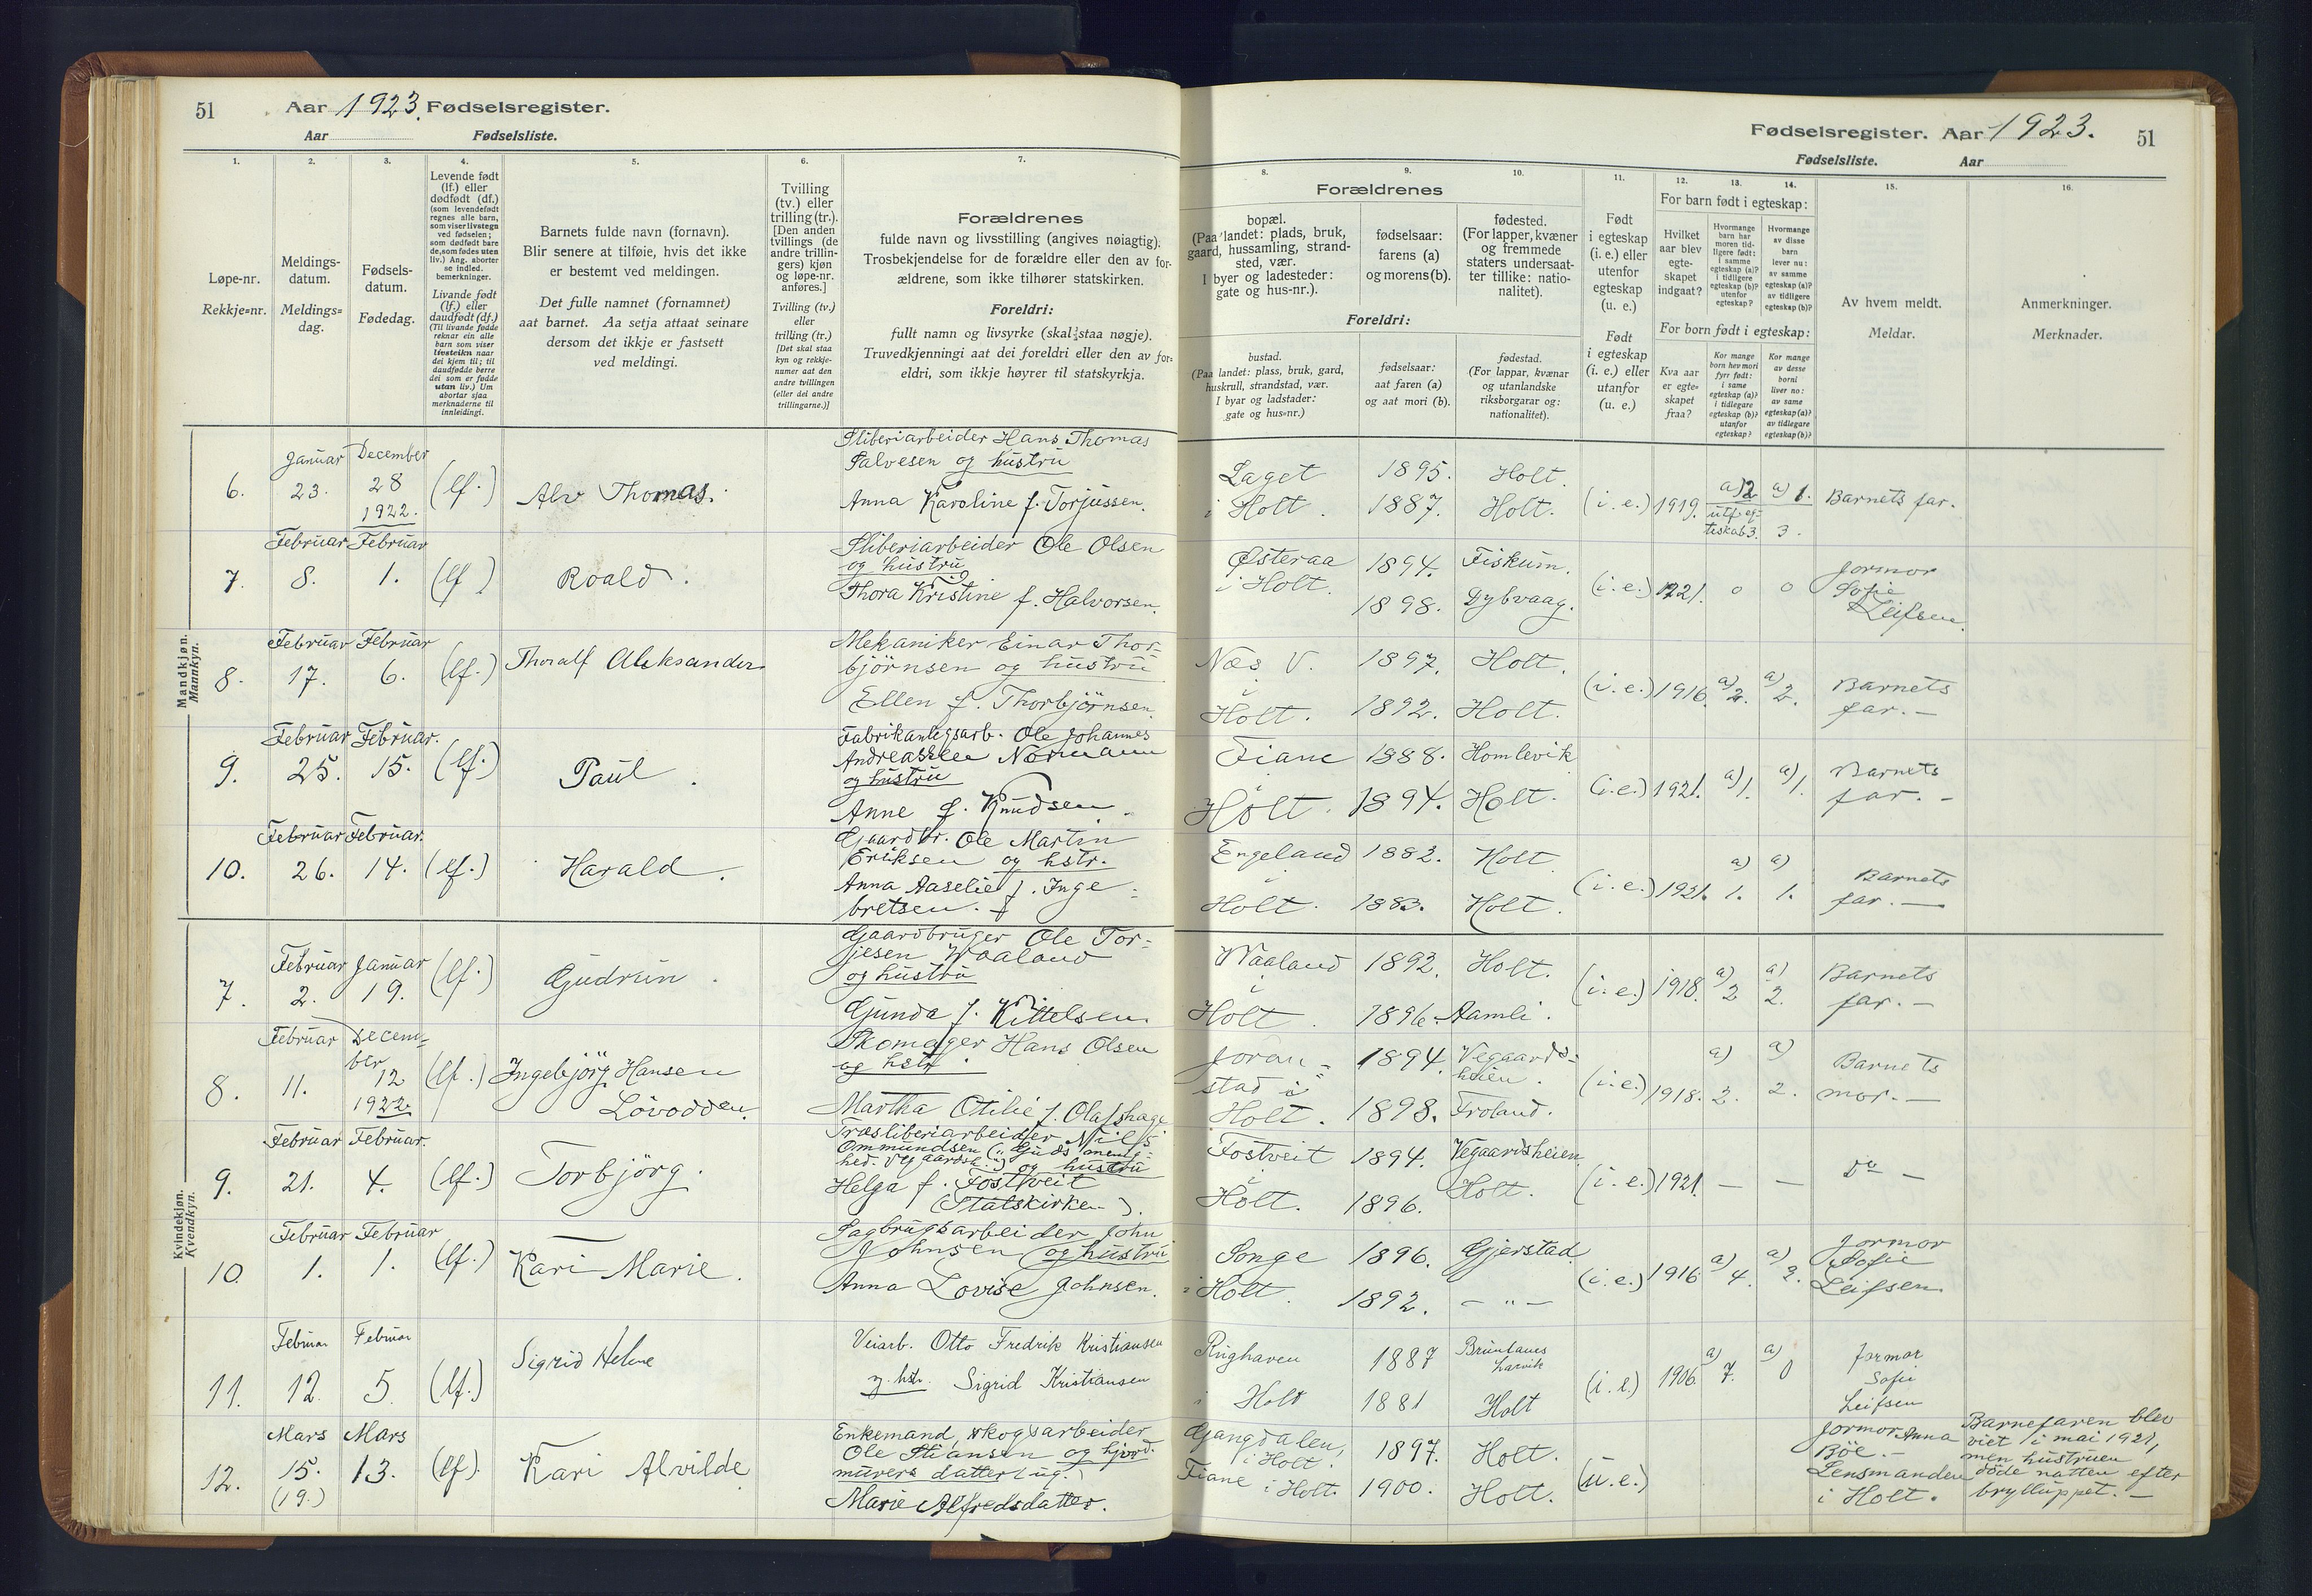 51 Aar 1923. Fødselsregister.
Aar Fødselsliste.
Fødselsregister. Aar 1923. 51
Fødselsliste. Aar
1.
Løpe-nr.
Rekkje=nr.
2.
Meldings-
datum.
Meldings=
dag.
3.
Fødsels-
datum.
Fødedag.
4.
Levende født
(lf.) eller
dødfødt (df.)
(som levendefødt
regnes alle barn,
som viser livstegn
ved fødselen;
som dødfødt bare
de, som fødes uten
liv.) Ang. aborter
se indled.
bemerkninger.
Livande født
(lf.) eller
daudfødt (df.)
(Til livande fødde
reknar ein alle
barn som viser
livsteikn naar
dei kjem til; til
daudfødde berre
dei som er fødde
utan liv.) Um
abortar sjaa
merknaderne til
innleidingi.
5.
Barnets fulde navn (fornavn).
Blir senere at tilføie, hvis det ikke
er bestemt ved meldingen.
Det fulle namnet (fornamnet)
aat barnet. Aa setja attaat seinare
dersom det ikkje er fastsett
ved meldingi.
6.
Tvilling
(tv.) eller
trilling (tr.).
[Den anden
tvillings (de
andre trillin-
gers) kjøn
og løpe-nr.
anføres.]
Tvilling (tv.)
eller
trilling (tr.)
[Det skal staa
kyn og rekkje-
numer aat den
andre tvillingen
(eller dei andre
trillingarne.)]
7.
Forældrenes
fulde navn og livsstilling (angives nøiagtig).
Trosbekjendelse for de forældre eller den av for-
ældrene, som ikke tilhører statskirken.
Foreldri:
fullt namn og livsyrke (skal staa nøgje).
Truvedkjenningi aat dei foreldri eller den av for=
eldri, som ikkje høyrer til statskyrkja.
Forældrenes
8.
bopæl.
(Paa landet: plads, bruk,
gaard, hussamling, strand-
sted, vær.
I byer og ladesteder:
gate og hus-nr.).
9.
fødselsaar:
farens (a)
og morens (b).
10.
fødested.
(For lapper, kvæner
og fremmede
staters undersaat-
ter tillike: natio-
nalitet).
Foreldri:
bustad.
(Paa landet: plass, bruk, gard,
huskrull, strandstad, vær.
I byar og ladstader:
gate og hus=nr.)
fødselsaar:
aat faren (a)
og aat mori (b).
fødestad.
(For lappar, kvænar
og utanlandske
riksborgarar og:
nationalitet).
11.
Født
i egteskap
(i. e.) eller
utenfor
egteskap
(u. e.)
Født
i egteskap
(i. e.) eller
utanfor
(u. e.)
12. 13. 14.
For barn født i egteskap:
Hvilket
aar blev
egte-
skapet
indgaat?
Hvormange
barn har
moren tid-
ligere født:
i samme
egteskap (a)?
i tidligere
egteskap (b)?
utenfor
egteskap?
Hvormange
av disse
barn
lever nu:
av samme
egteskap (a)?
av tidligere
egteskap (b)?
For born født i egteskap:
Kva aar
er egte-
skapet
fraa?
Kor mange
born hev mori
fyrr født:
i same
egteskap (a)?
i tidlegare
egteskap (b)?
utanfor
egteskap?
Kor mange
av desse
borni
liver no:
av same
egteskap (a)?
av tidlegare
egteskap (b)?
15.
Av hvem meldt.
Meldar.
16.
Anmerkninger.
Merknader.
Mandkjøn.
Mannkyn.
6. Januar 23. December 28 1922. (lf.) Alv Thomas.
Sliberiarbeider Hans Thomas
Salvesen og hustru
Anna Karoline f. Torjussen.
Laget i Holt. 1895. 1887. Holt. Holt. (i. e.) 1919. a) 2 utf. eg-teskab 3. a) 1. 3. Barnets far.
7. Februar 8. Februar 1. (lf.) Roald.
Sliberiarbeider Ole Olsen
og hustru
Thora Kristine f. Halvorsen.
Østeraa i Holt. 1894. 1898. Fiskum. Dybvaag. (i. e.) 1921. 0 0 Jormor Sofie Leifsen.
8. Februar 17. Februar 6. (lf.) Thoralf Aleksander
Mekaniker Einar Thor-
bjørnsen og hustru
Ellen f. Thorbjørnsen.
Næs V. i Holt. 1897. 1892. Holt. Holt. (i. e.) 1916. a) 2. a) 2. Barnets far. —
9. Februar 25. Februar. 15. (lf.) Paul.
Fabrikanlegsarb. Ole Johannes
Andreassen Normann
og hustru
Anne f. Knudsen.
Fiane i Holt. 1888. 1894. Homlevik Holt. (i. e.) 1921. a) 1. a) 1. Barnets far. —
10. Februar 26. Februar. 14. (lf.) Harald.
Gaardbr. Ole Martin
Eriksen og hstr.
Anna Aaselie f. Inge-
bretsen.
Engeland i Holt. 1882. 1883. Holt Holt. (i. e.) 1921. a) 1. a) 1. Barnets far. —
Kvindekjøn.
Kvendkyn.
7. Februar 2. Januar 19. (lf.) Gudrun.
Gaardbruger Ole Tor-
jesen Waaland
og hustru
Gunda f. Kittelsen
Waaland i Holt. 1892. 1896. Holt. Aamli. (i. e.) 1918. a) 2 a) 2. Barnets far. —
8. Februar 11. Decem-ber 12 1922. (lf.) Ingebjörg Hansen Lövodden.
Skomager Hans Olsen
og hstr.
Martha Otilie f. Olafshage
Joran-stad i Holt. 1894. 1898. Vegaards-heien. Froland. (i. e.) 1918. a) 2. a) 2. Barnets mor. —
9. Februar 21. Februar. 4. (lf.) Torbjörg.
Træsliberiarbeider Nils
Ommundsen („Guds menig-
hed. Vegaardsh.") og hustru
Helga f. Fostveit
(Statskirken).
Fostveit i Holt. 1894. 1896. Vegaardsheien. Holt. (i. e.) 1921. — — Do —
10. Februar 1. Februar 1. (lf.) Kari Marie.
Sagbrugsarbeider John
Johnsen og hustru
Anna Lovise Johnsen.
Songe i Holt. 1896. 1892. Gjerstad — " — (i. e.) 1916. a) 4. a) 2. Jormor Sofie Leifsen.
11. Februar 12. Februar 5. (lf.) Sigrid Helene
Veiarb. Otto Fredrik Kristiansen
og hstr. Sigrid Kristiansen
Rughaven i Holt 1887 1881 Brunlanes Larvik Holt (i. e.) 1906. a) 7. a) 0 Jormor Sofie Leifsen
12. Mars 15. (19.) Mars 13. (lf). Kari Alvilde
Enkemand, skogsarbeider
Ole Stiansen og hjord.
murers datter (ug.)
Marie Alfredsdatter.
Gangdalen, i Holt. Fiane i Holt. 1897. 1900. Holt. Holt. (u. e.) Jormor Anna Böe. — Lensmanden i Holt.
Barnefaren blev
viet i mai 1921,
men hustruen
döde natten efter
brylluppet. —